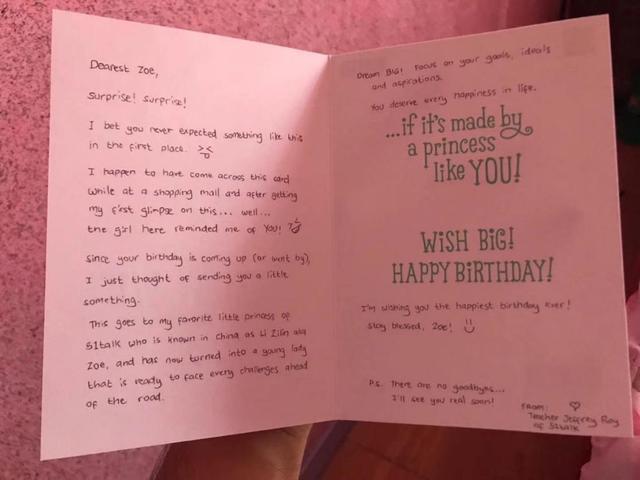 Dearest Zoe,
Surprise! Surprise!
I bet you never expected something like this
in the first place.
I happen to have come across this card
while at a shopping mall and after getting
my first glimpse on this... well...
the girl here reminded me of YOU!
Since your birthday is coming up (or went by),
I just thought of sending you a little
something.
This goes to my favorite little princess of
51talk who is known in China as Li Zilin aka
Zoe, and has now turned into a young lady
that is ready to face every challenges ahead
of the road.
Dream BIG! Focus on your goals, ideals
and aspirations.
You deserve every happiness in life.
...if it's made by
a princess
like YOU!
WiSH BiG!
HAPPY BiRTHDAY!
I'm wishing you the happiest birthday ever!
Stay blessed, Zoe!
P.S. There are no goodbyes...
I'll see you real soon!
FROM:
Teacher Jeffrey Roy
of 51talk